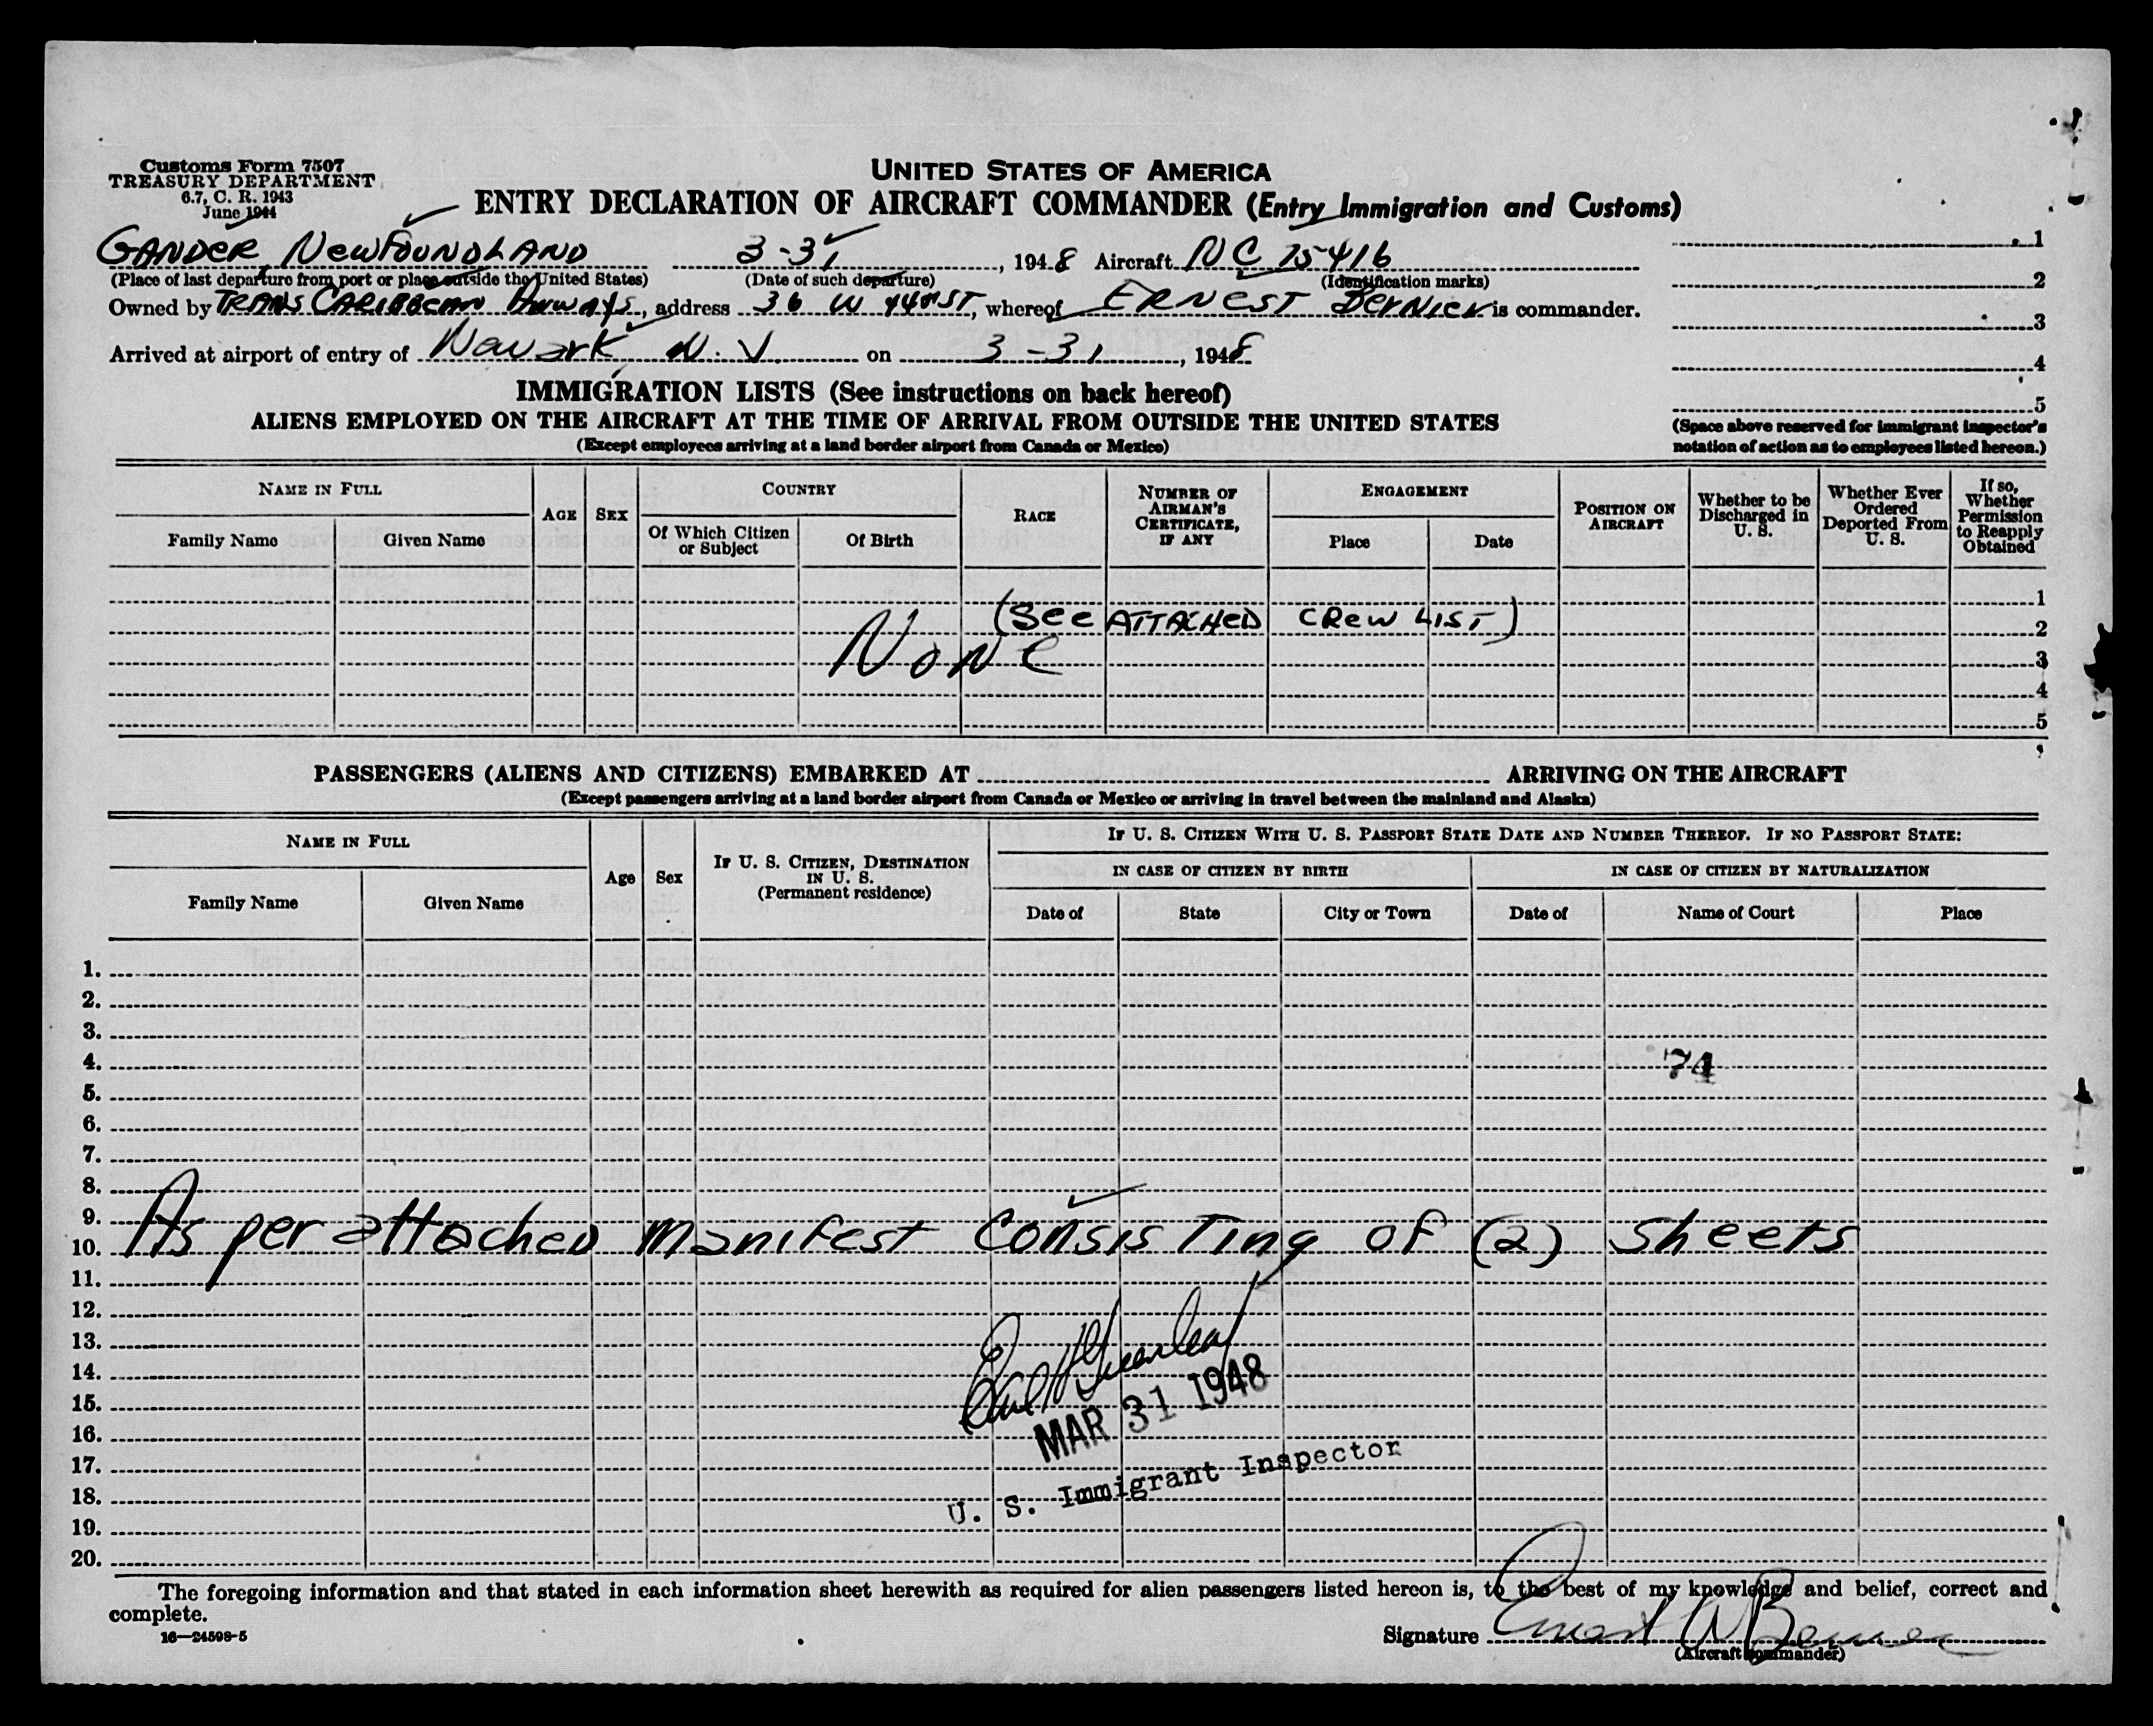 Customs Form 7507
TREASURY DEPARTMENT
6.7, C. R. 1943
June 1944
UNITED STATES OF AMERICA
ENTRY DECLARATION OF AIRCRAFT COMMANDER (Entry Immigration and Customs)
GANDER, NewFOUNDLAND 3-31, 1948 Aircraft NC 75416
(Place of last departure from port or place outside the United States) (Date of such departure) (Identification marks)
Owned by TRANS CARIBBEAN Airways, address 36 W 44th ST, whereof ERNEST Bernier is commander.
Arrived at airport of entry of Newark N.J. on 3-31, 1948
1
2
3
4
5
(Space above reserved for immigrant inspector's
notation of action as to employees listed hereon.)
IMMIGRATION LISTS (See instructions on back hereof)
ALIENS EMPLOYED ON THE AIRCRAFT AT THE TIME OF ARRIVAL FROM OUTSIDE THE UNITED STATES
(Except employees arriving at a land border airport from Canada or Mexico)
NAME IN FULL
Family Name Given Name
AGE SEX
COUNTRY
Of Which Citizen or Subject Of Birth
RACE
NUMBER OF AIRMAN'S CERTIFICATE, IF ANY
ENGAGEMENT
Place Date
POSITION ON AIRCRAFT
Whether to be Discharged in U. S.
Whether Ever Ordered Deported From U. S.
If so, Whether Permission to Reapply Obtained
1
(See ATTACHED CREW LIST) 2
None 3
4
5
PASSENGERS (ALIENS AND CITIZENS) EMBARKED AT ARRIVING ON THE AIRCRAFT
(Except passengers arriving at a land border airport from Canada or Mexico or arriving in travel between the mainland and Alaska)
NAME IN FULL
Family Name Given Name
Age Sex
IF U. S. CITIZEN, DESTINATION IN U. S.
(Permanent residence)
IF U. S. CITIZEN WITH U. S. PASSPORT STATE DATE AND NUMBER THEREOF. IF NO PASSPORT STATE:
IN CASE OF CITIZEN BY BIRTH IN CASE OF CITIZEN BY NATURALIZATION
Date of State City or Town Date of Name of Court Place
1.
2.
3.
4. 74
5.
6.
7.
8.
9.
10. As per attached manifest Consisting of (2) Sheets
11.
12.
13.
14. Earl H Greenleaf
15. MAR 31 1948
16.
17.
18. U. S. Immigrant Inspector
19.
20.
The foregoing information and that stated in each information sheet herewith as required for alien passengers listed hereon is, to the best of my knowledge and belief, correct and
complete.
16—24598-5
Signature Ernest W Bernier
(Aircraft Commander)